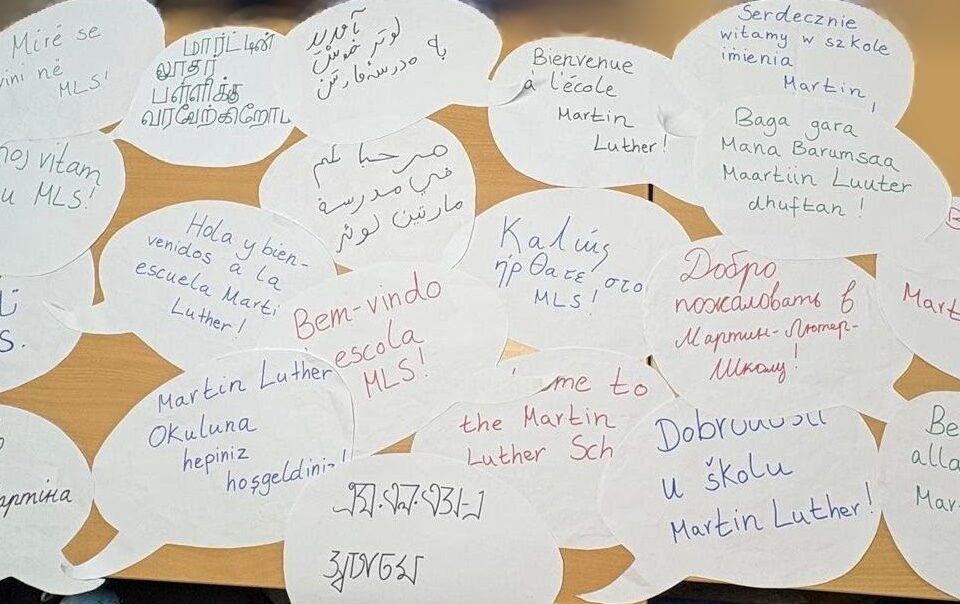 Mirë se
vini në
MLS!
மார்ட்டின்
லூதர்
பள்ளிக்கு
வரவேற்கிறோம்
آمدید
خوش
لوتر
به مدرسه مارتین
Bienvenue
à l'école
Martin
Luther!
Serdecznie
witamy w szkole
imienia
Martin,
vitam
u MLS!
مرحبا بكم
في مدرسة
مارتين لوثر
Baga gara
Mana Barumsaa
Maartiin Luuter
dhuftan!
Hola y bien-
venidos a la
escuela Marti
Luther!
Καλώς
ήρθατε στο
MLS!
Добро
пожаловать в
Мартин-Лютер-
Школу!
Bem-vindo
escola
MLS!
Martin Luther
Okuluna
hepiniz
hoşgeldiniz!
me to
the Martin
Luther Sch
u školu
Martin Luther!
Be
alla
Mar
Mart